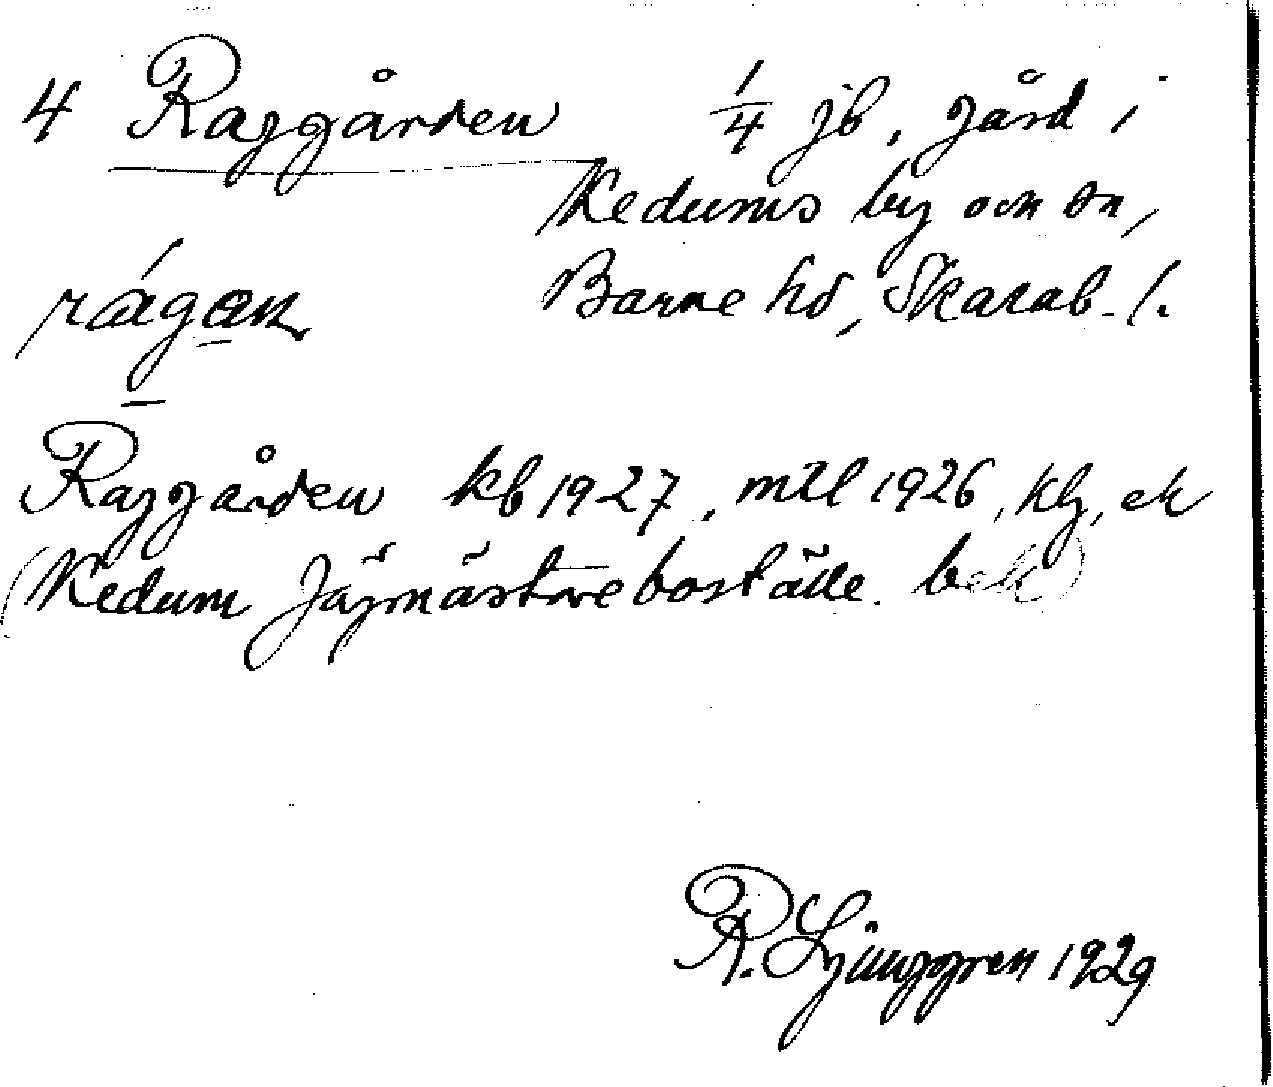 4 Raggården 1/4 jb. gård i
Kedums by och sn,
rágæn Barne hd, Skarab. l.
Raggården kb 1927, mtl 1926, klg, ek
(Kedum Jägmästareboställe bek)
R. Ljunggren 1929